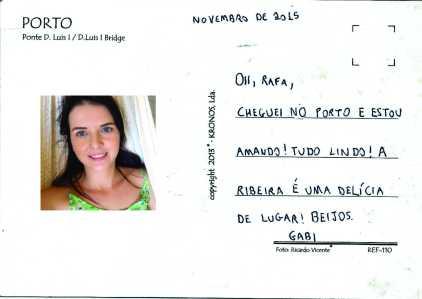 PORTO
Ponte D. Luis I / D.Luis I Bridge
NOVEMBRO DE 2015
copyright 2013 - KRONOS, Lda.
OII, RAFA,
CHEGUEI NO PORTO E ESTOU
AMANDO! TUDO LINDO! A
RIBEIRA É UMA DELÍCIA
DE LUGAR! BEIJOS.
GABI
Foto: Ricardo Vicente
REF-110